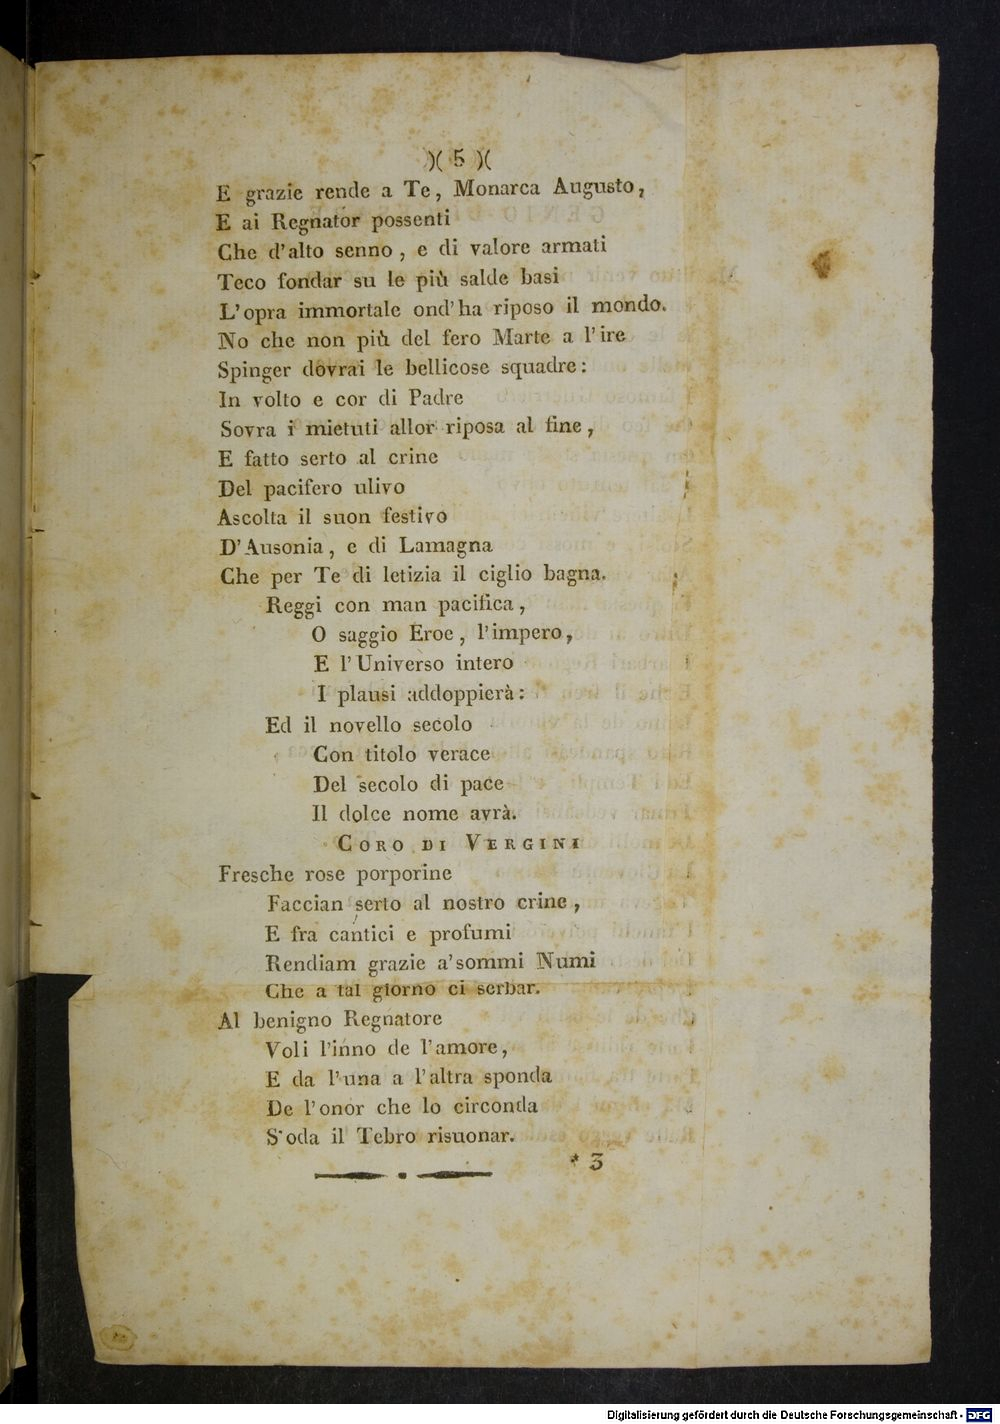 )( 5 )(
E grazie rende a Te, Monarca Augusto,
E ai Regnator possenti
Che d'alto senno, e di valore armati
Teco fondar su le più salde basi
L'opra immortale ond'ha riposo il mondo.
No che non più del fero Marte a l'ire
Spinger dovrai le bellicose squadre:
In volto e cor di Padre
Sovra i mietuti allor riposa al fine,
E fatto serto al crine
Del pacifero ulivo
Ascolta il suon festivo
D'Ausonia, e di Lamagna
Che per Te di letizia il ciglio bagna.
Reggi con man pacifica,
O saggio Eroe, l'impero,
E l'Universo intero
I plausi addoppierà:
Ed il novello secolo
Con titolo verace
Del secolo di pace
Il dolce nome avrà.
CORO DI VERGINI
Fresche rose porporine
Faccian serto al nostro crine,
E fra cantici e profumi
Rendiam grazie a'sommi Numi
Che a tal giorno ci serbar.
Al benigno Regnatore
Voli l'inno de l'amore,
E da l'una a l'altra sponda
De l'onor che lo circonda
S'oda il Tebro risuonar.
* 3
Digitalisierung gefördert durch die Deutsche Forschungsgemeinschaft - DFG